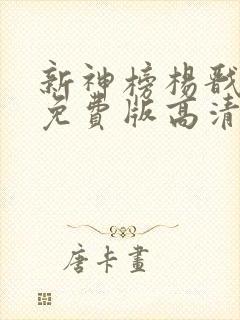 新神榜杨戬
免費版高清
唐卡畫